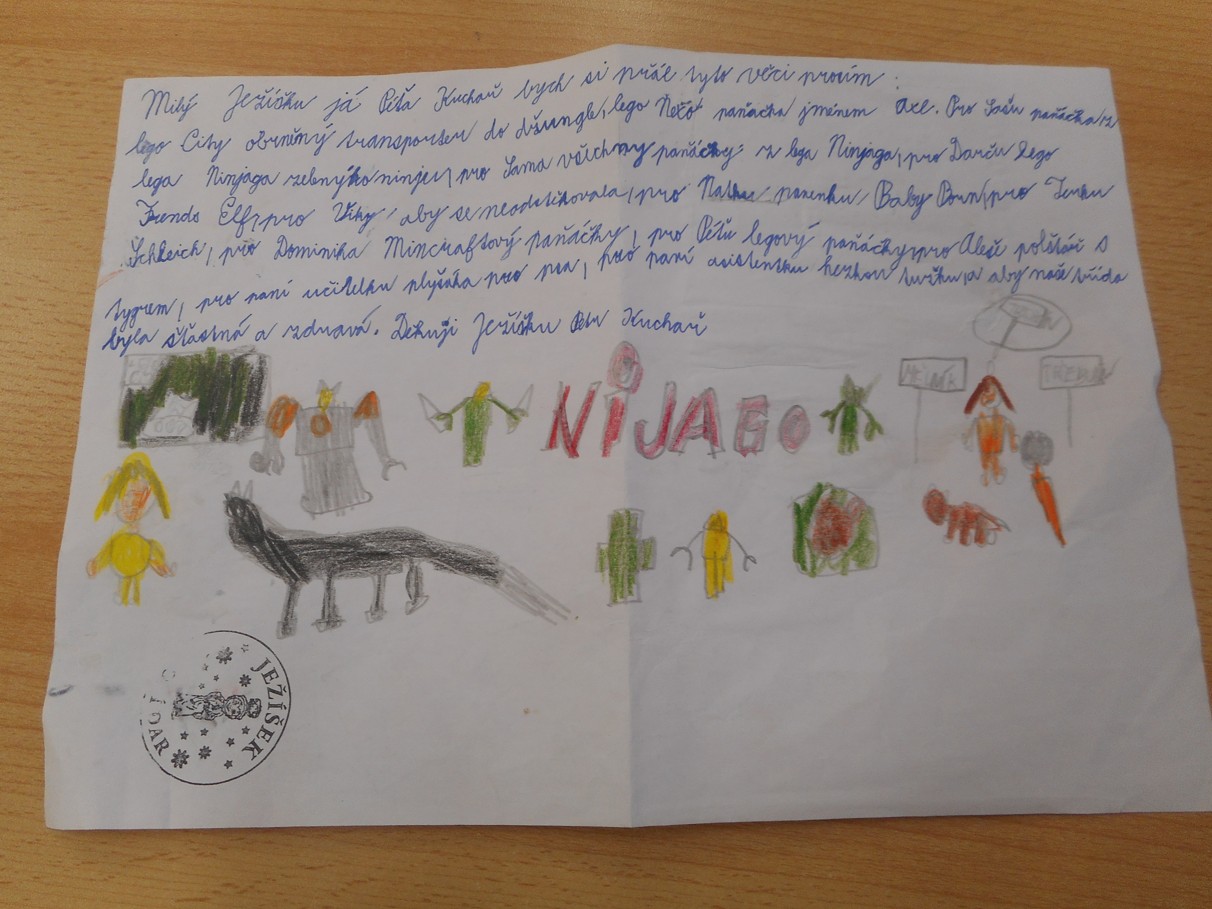 Milý Ježíšku já Péťa Kuchař bych si přál tyto věci prosím:
lego City obrněný transportér do džungle, lego Nexo paňáčka jménem Axl. Pro Sašu paňáčka z
lega Ninjaga zelenýho ninju, pro Sama všechny paňáčky z lega Ninjaga, pro Darču lego
Frends Elf, pro Viky aby se neodstěhovala, pro panenku Baby Born, pro
Schleich, pro Dominika Mincraftový paňáčky, pro Péťu legový paňáčky, pro Aleše polštář s
tygrem, pro paní učitelku plyšáka pro psa, pro paní asistentku hezkou a aby naše třída
byla šťastná a zdravá. Dekuji Ježíšku Petr Kuchař
NiJAGO
JEŽÍŠEK
DAR